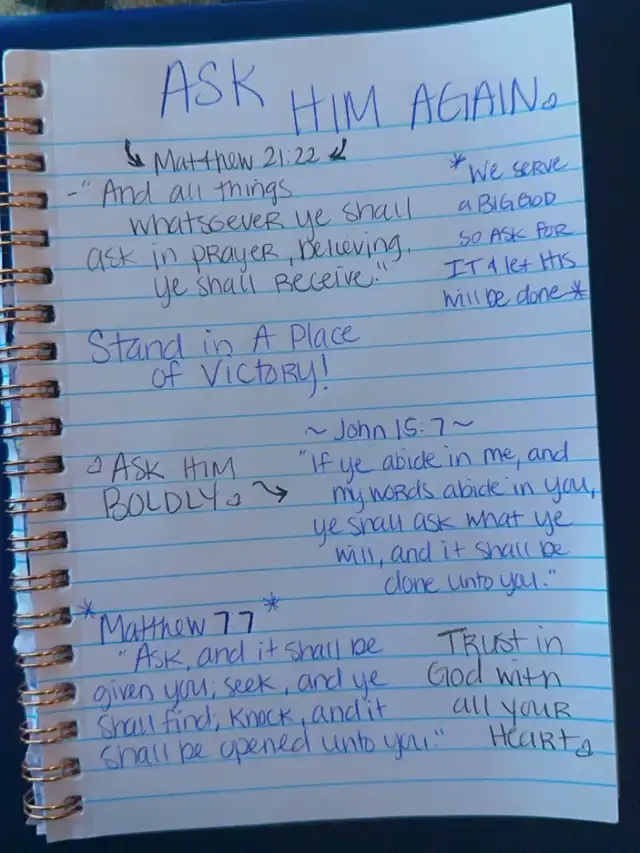 ASK HIM AGAIN.
Matthew 21:22
-"And all things
whatsoever ye shall
ask in prayer, believing,
ye shall receive."
*We serve
a BIG GOD
so ASK FOR
IT & let His
will be done*
Stand in A Place
of VICTORY!
ASK HIM
BOLDLY.
~John 15:7~
"If ye abide in me, and
my words abide in you,
ye shall ask what ye
will, and it shall be
done unto you."
*Matthew 7:7*
"Ask, and it shall be
given you; seek, and ye
shall find; knock, and it
shall be opened unto you."
TRUST in
God with
all your
HEART